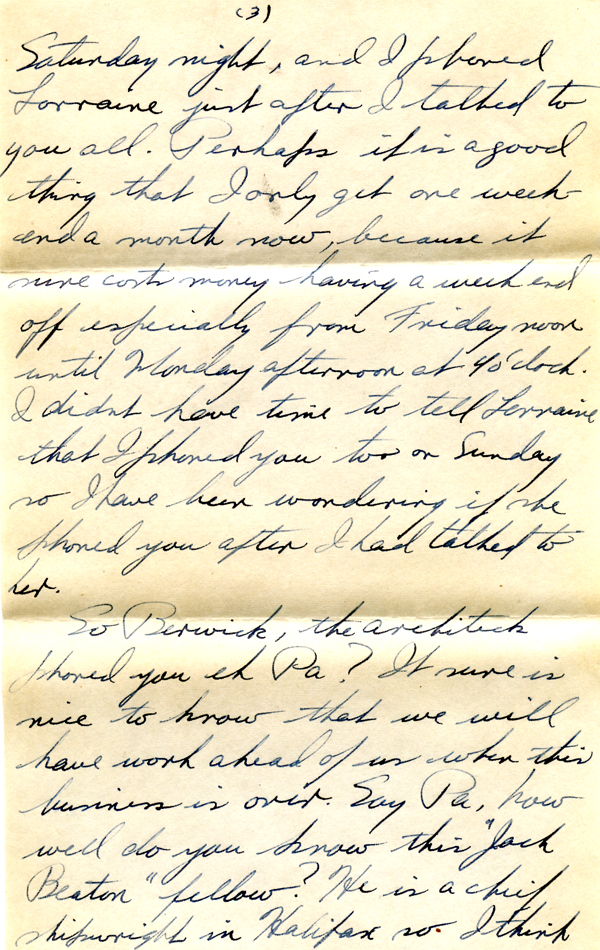 (3)
Saturday night, and I phoned
Lorraine just after I talked to
you all. Perhaps it is a good
thing that I only get one week-
end a month now, because it
sure costs money having a week end
off especially from Friday noon
until Monday afternoon at 4 o'clock.
I didnt have time to tell Lorraine
that I phoned you too on Sunday
so I have been wondering if she
phoned you after I had talked to
her.
So Berwick, the architeck
phoned you eh Pa? It sure is
nice to know that we will
have work ahead of us when this
business is over. Say Pa, how
well do you know this "Jack
Beaton" fellow? He is a chief
shipwright in Halifax so I think